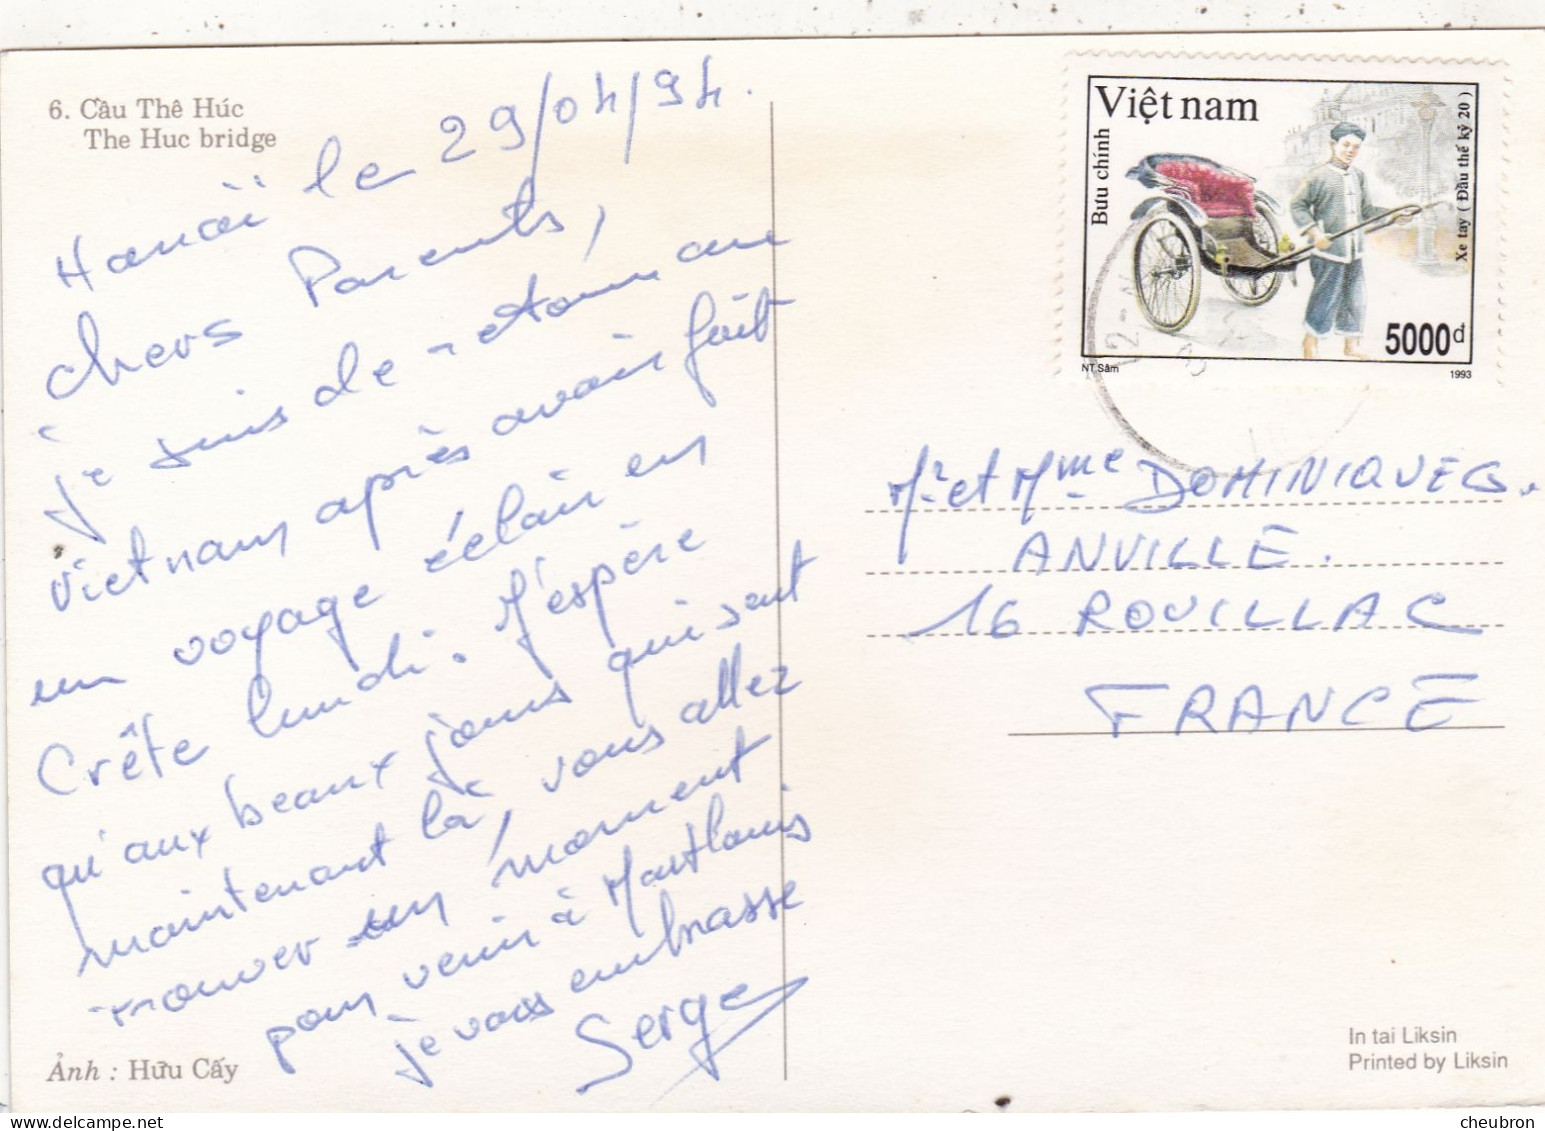 6. Cầu Thê Húc
The Huc bridge
Hanoï le 29/04/94.
chers Parents,
je suis de retour au
Vietnam après avoir fait
un voyage éclair en
Crête lundi. J'espère
qu'aux beaux jours qui sont
maintenant là, vous allez
trouver un moment
pour venir à Montlouis
je vous embrasse
Serge
Ảnh : Hữu Cấy
Việt nam
Bưu chính
Xe tay ( Đầu thế kỷ 20 )
5000đ
NT Sâm
1993
Mr et Mme DOMINIQUE G.
ANVILLE.
16 ROUILLAC
FRANCE
In tai Liksin
Printed by Liksin
cheubron